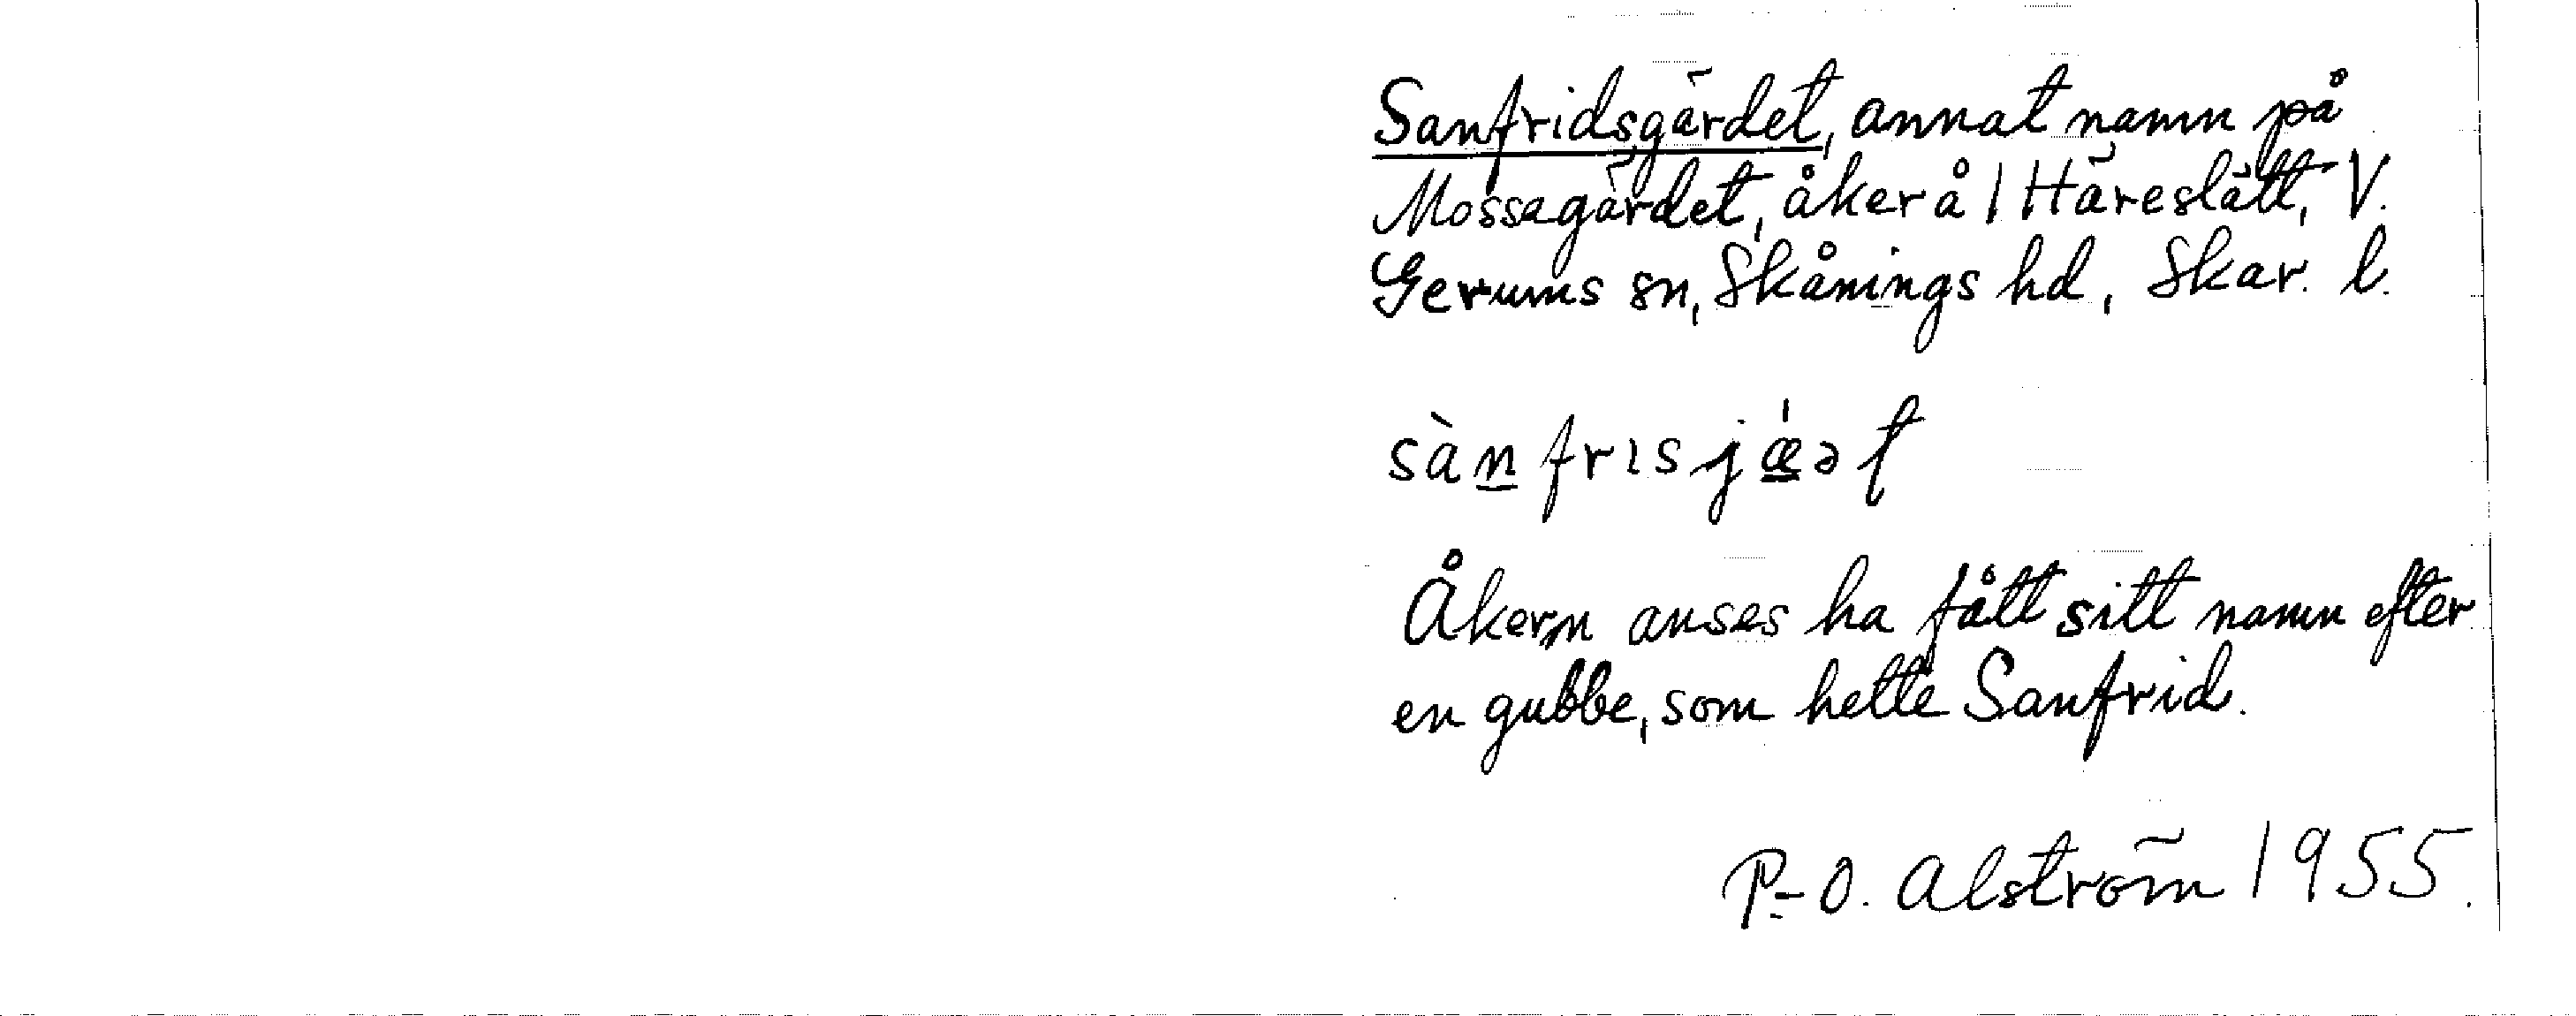 Sanfridsgärdet, annat namn på
Mossagärdet, åker å 1 Häreslätt, V.
Gerums sn, Skånings hd, Skar. l.
sàn frısjǽət
Åkern anses ha fått sitt namn efter
en gubbe, som hette Sanfrid.
P.-O. Alström 1955.